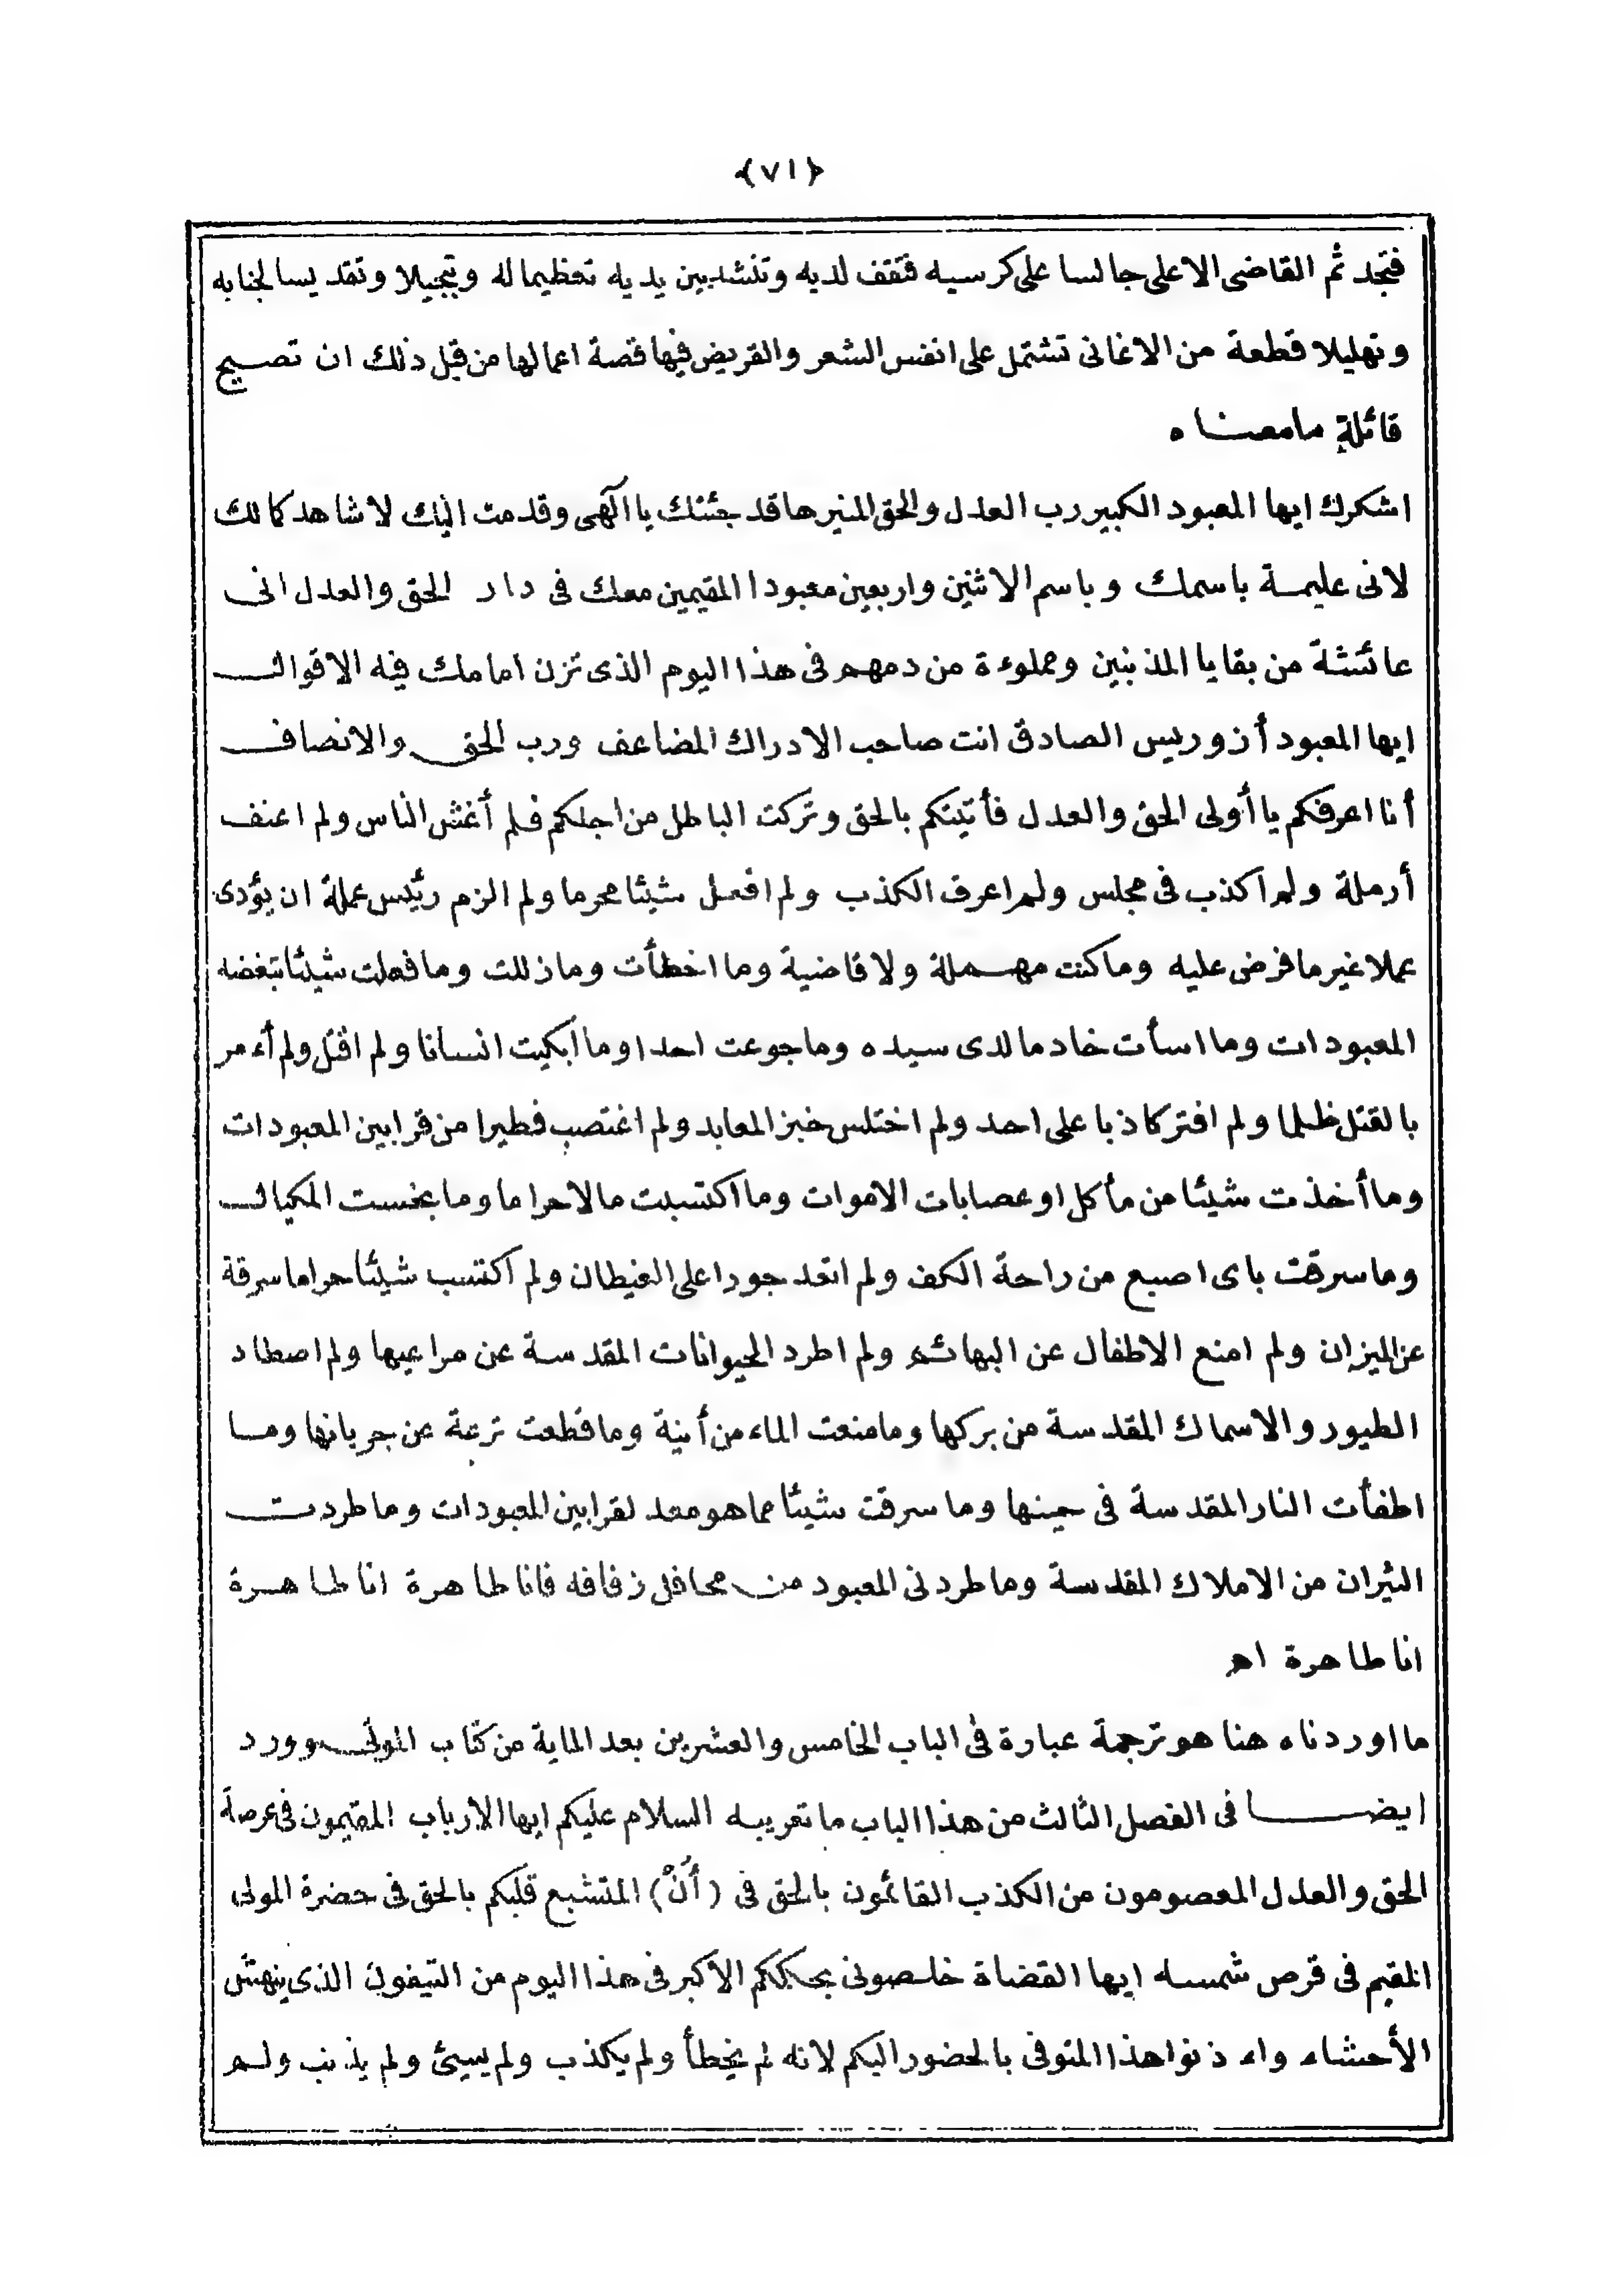 ﴿٧١﴾
فتجد ثم القاضى الاعلى جالسا على كرسيه فتقف لديه وتنشد بين يديه تعظيما له وتبجيلا وتقديسا لجنابه
وتهليلا قطعة من الاغانى تشتمل على انفس الشعر والقريض فيها قصة اعمالها من قبل ذلك ان تصيح
قائلة مامعناه
اشكرك ايها المعبود الكبير رب العدل والحق المنير ها قد جئتك يا آلهى وقدمت اليك لاشاهد كمالك
لانى عليمة باسمك وباسم الاثنين واربعين معبودا المقيمين معك فى دار الحق والعدل انى
عائشة من بقايا المذنبين ومملوءة من دمهم فى هذا اليوم الذى تزن امامك فيه الاقوال
ايها المعبود أزوريس الصادق انت صاحب الادراك المضاعف ورب الحق والانصاف
أنا اعرفكم يا أولى الحق والعدل فأتيتكم بالحق وتركت الباطل من اجلكم فلم أغش الناس ولم اعنف
أرملة ولم اكذب فى مجلس ولم اعرف الكذب ولم افعل شيئا محرما ولم الزم رئيس عملة ان يؤدى
عملا غير ما فرض عليه وما كنت مهملة ولا قاضية وما اخطأت وما ذللت وما فعلت شيئا تبغضه
المعبودات وما اسأت خادما لدى سيده وما جوعت احدا وما أبكيت انسانا ولم اقتل ولم أءمر
بالقتل ظلما ولم افتر كاذبا على احد ولم اختلس خبز المعابد ولم اغتصب فطيرا من قرابين المعبودات
وما أخذت شيئا من مأكل او عصابات الاموات وما اكتسبت مالا حراما وما بخست المكيال
وما سرقت باى اصبع من راحة الكف ولم اتعد جورا على الغيطان ولم اكتسب شيئا حراما سرقة
عن الميزان ولم امنع الاطفال عن البهائم ولم اطرد الحيوانات المقدسة عن مراعيها ولم اصطاد
الطيور والاسماك المقدسة من بركها وما منعت الماء من أنية وما قطعت ترعة عن جريانها وما
اطفأت النار المقدسة فى حينها وما سرقت شيئا مما هو معد لقرابين المعبودات وما طردت
الثيران من الاملاك المقدسة وما طردنى المعبود من محافل زفافه فانا طاهرة انا طاهرة
انا طاهرة اه
ما اوردناه هنا هو ترجمة عبارة فى الباب الخامس والعشرين بعد الماية من كتاب الموتى وورد
ايضا فى الفصل الثالث من هذا الباب ما تعريبه السلام عليكم ايها الارباب المقيمون فى عرصة
الحق والعدل المعصومون من الكذب القائمون بالحق فى (أُنْ) المتشبع قلبكم بالحق فى حضرة المولى
المقيم فى قرص شمسه ايها القضاة خلصونى بحككم الاكبر فى هذا اليوم من التيفون الذى ينهش
الأحشاء واءذنوا هذا المتوفى بالحضور اليكم لانه لم يخطأ ولم يكذب ولم يسيئ ولم يذنب ولم